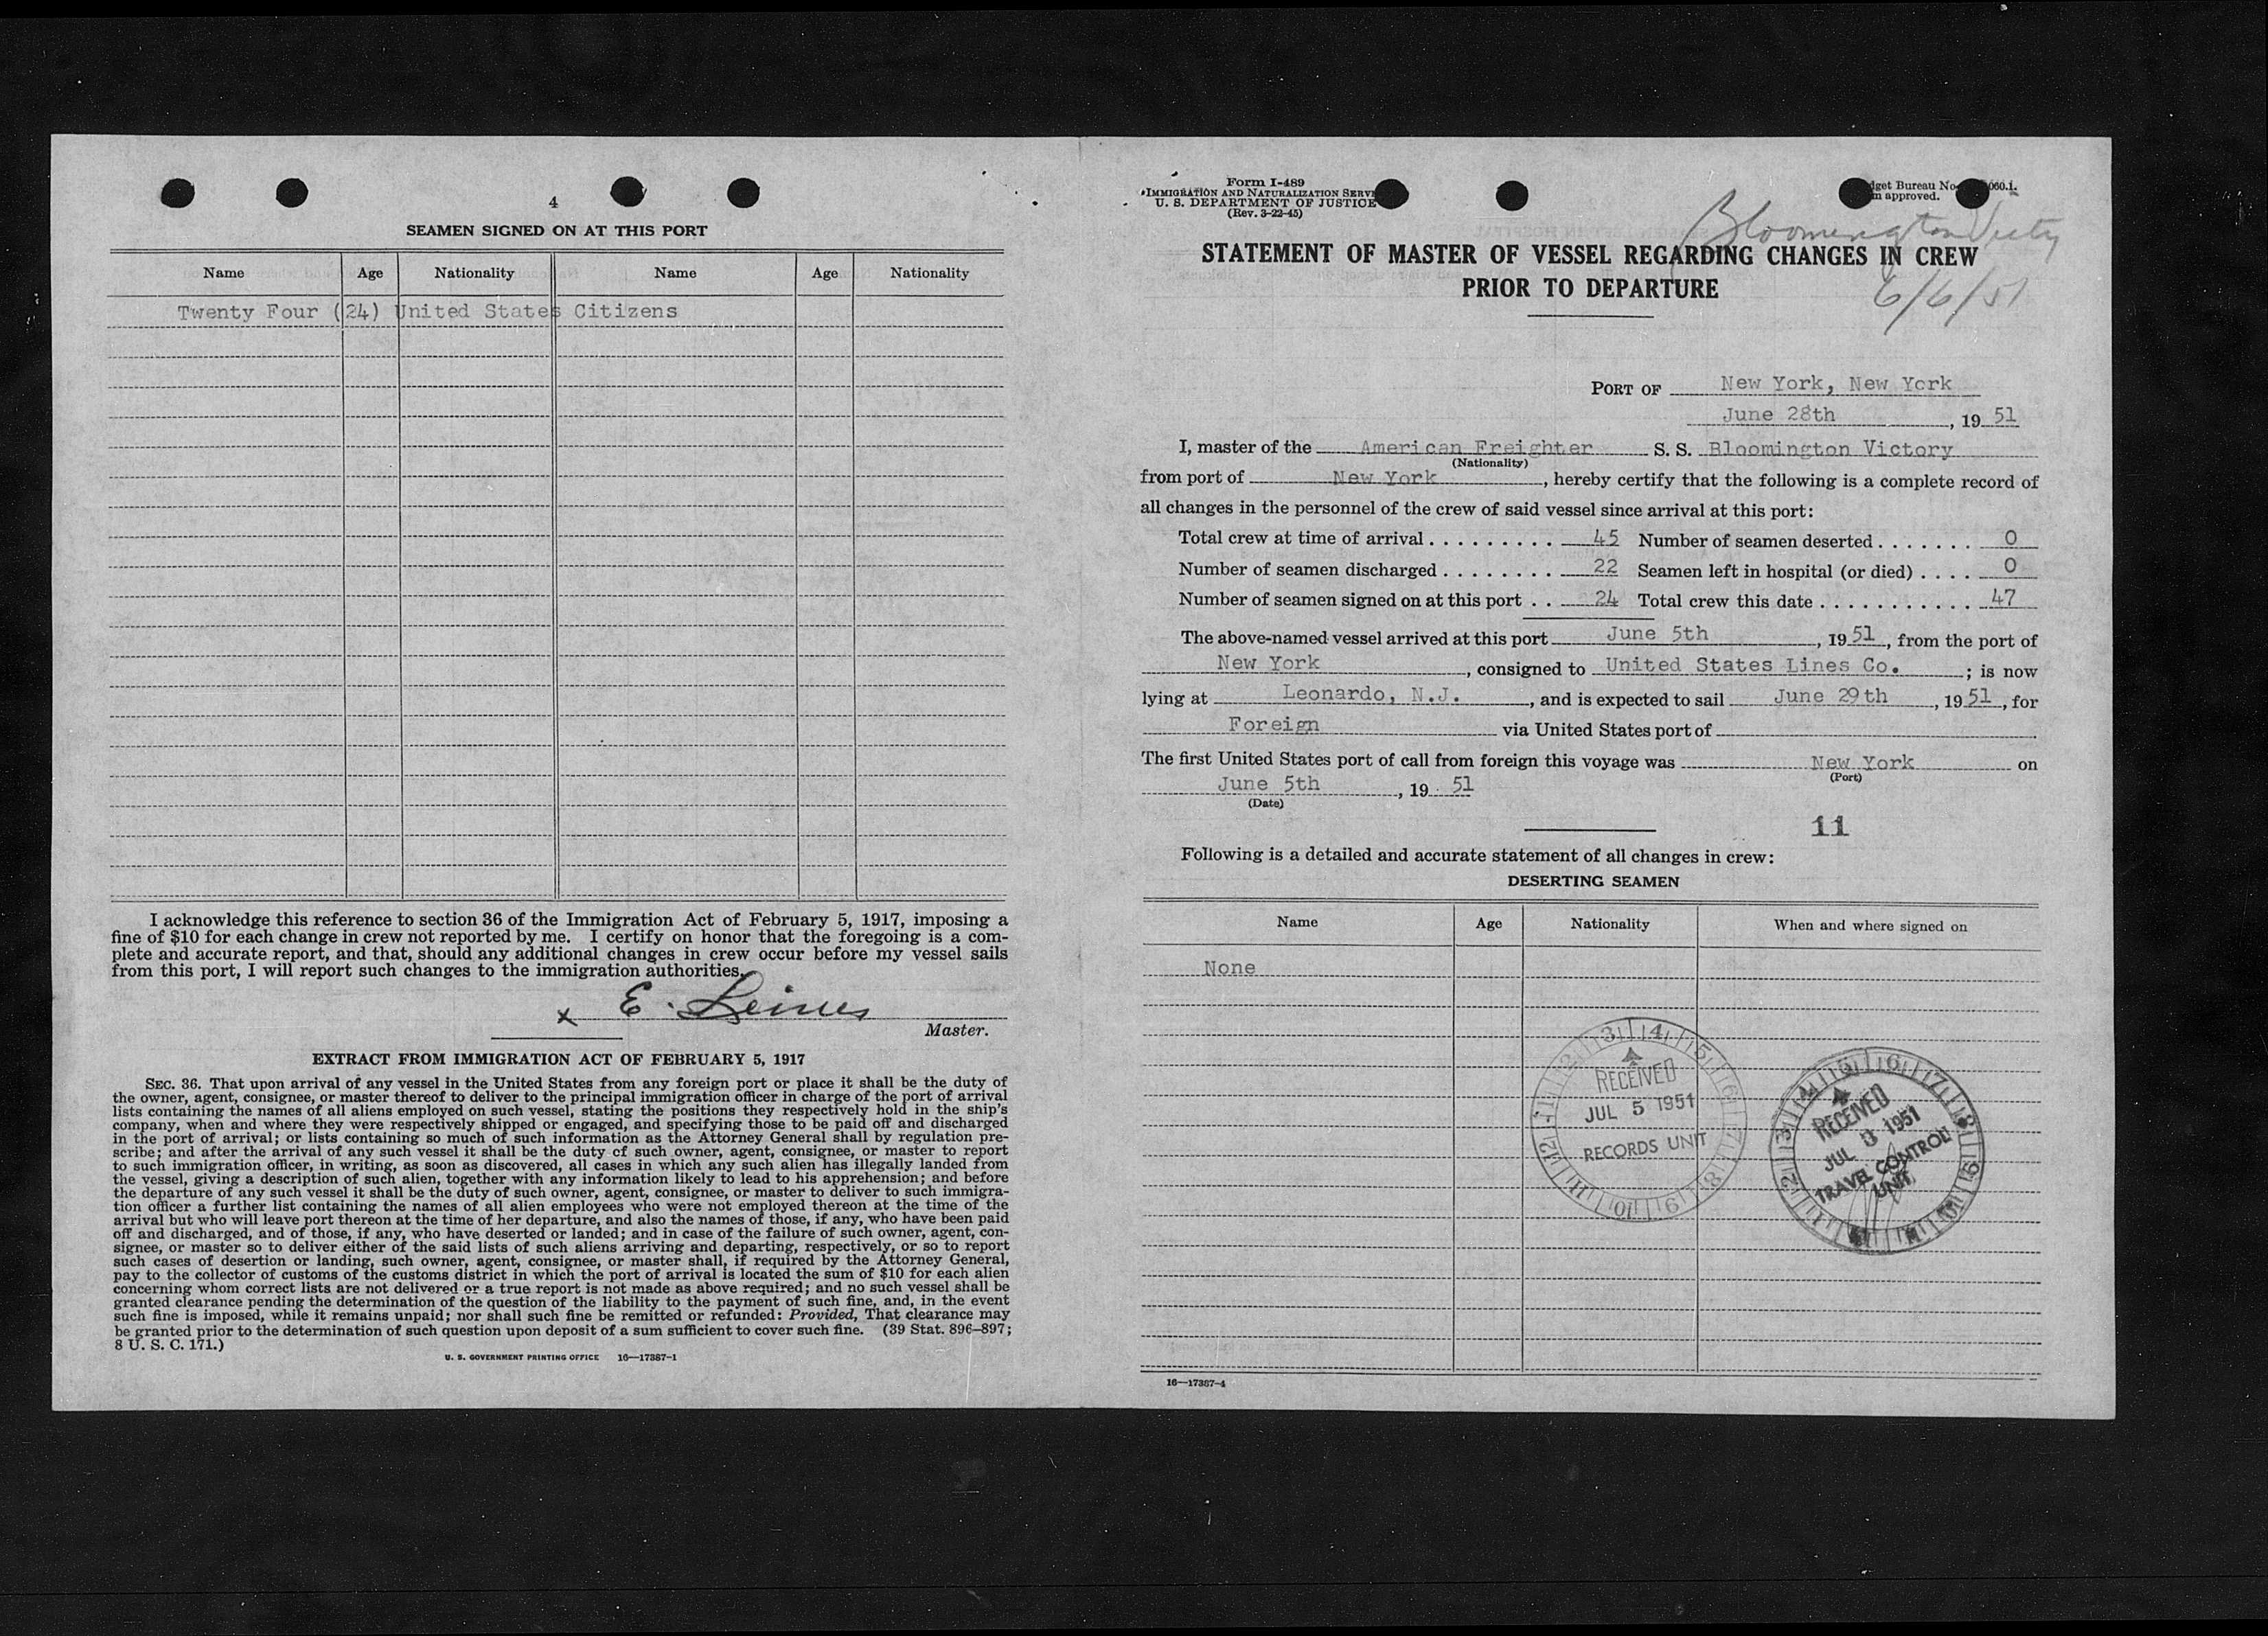 4
SEAMEN SIGNED ON AT THIS PORT
Name Age Nationality Name Age Nationality
Twenty Four (24) United States Citizens
I acknowledge this reference to section 36 of the Immigration Act of February 5, 1917, imposing a
fine of $10 for each change in crew not reported by me. I certify on honor that the foregoing is a com-
plete and accurate report, and that, should any additional changes in crew occur before my vessel sails
from this port, I will report such changes to the immigration authorities.
x E. Leines
Master.
EXTRACT FROM IMMIGRATION ACT OF FEBRUARY 5, 1917
SEC. 36. That upon arrival of any vessel in the United States from any foreign port or place it shall be the duty of
the owner, agent, consignee, or master thereof to deliver to the principal immigration officer in charge of the port of arrival
lists containing the names of all aliens employed on such vessel, stating the positions they respectively hold in the ship's
company, when and where they were respectively shipped or engaged, and specifying those to be paid off and discharged
in the port of arrival; or lists containing so much of such information as the Attorney General shall by regulation pre-
scribe; and after the arrival of any such vessel it shall be the duty of such owner, agent, consignee, or master to report
to such immigration officer, in writing, as soon as discovered, all cases in which any such alien has illegally landed from
the vessel, giving a description of such alien, together with any information likely to lead to his apprehension; and before
the departure of any such vessel it shall be the duty of such owner, agent, consignee, or master to deliver to such immigra-
tion officer a further list containing the names of all alien employees who were not employed thereon at the time of the
arrival but who will leave port thereon at the time of her departure, and also the names of those, if any, who have been paid
off and discharged, and of those, if any, who have deserted or landed; and in case of the failure of such owner, agent, con-
signee, or master so to deliver either of the said lists of such aliens arriving and departing, respectively, or so to report
such cases of desertion or landing, such owner, agent, consignee, or master shall, if required by the Attorney General,
pay to the collector of customs of the customs district in which the port of arrival is located the sum of $10 for each alien
concerning whom correct lists are not delivered or a true report is not made as above required; and no such vessel shall be
granted clearance pending the determination of the question of the liability to the payment of such fine, and, in the event
such fine is imposed, while it remains unpaid; nor shall such fine be remitted or refunded: Provided, That clearance may
be granted prior to the determination of such question upon deposit of a sum sufficient to cover such fine. (39 Stat. 896–897;
8 U. S. C. 171.)
U. S. GOVERNMENT PRINTING OFFICE 16—17387-1
Form I-489
IMMIGRATION AND NATURALIZATION SERV
U. S. DEPARTMENT OF JUSTICE
(Rev. 3-22-45)
get Bureau No. 060.1.
m approved.
Bloomington Victy
6/6/51
STATEMENT OF MASTER OF VESSEL REGARDING CHANGES IN CREW
PRIOR TO DEPARTURE
PORT OF New York, New York
June 28th, 19 51
I, master of the American Freighter S. S. Bloomington Victory
(Nationality)
from port of New York, hereby certify that the following is a complete record of
all changes in the personnel of the crew of said vessel since arrival at this port:
Total crew at time of arrival 45 Number of seamen deserted 0
Number of seamen discharged 22 Seamen left in hospital (or died) 0
Number of seamen signed on at this port 24 Total crew this date 47
The above-named vessel arrived at this port June 5th, 19 51, from the port of
New York, consigned to United States Lines Co. ; is now
lying at Leonardo, N.J., and is expected to sail June 29th, 19 51, for
Foreign via United States port of
The first United States port of call from foreign this voyage was New York on
(Port)
June 5th, 19 51
(Date)
11
Following is a detailed and accurate statement of all changes in crew:
DESERTING SEAMEN
Name Age Nationality When and where signed on
None
RECEIVED
JUL 5 1951
RECORDS UNIT
RECEIVED
JUL 3 1951
TRAVEL CONTROL
UNIT
16—17387-4